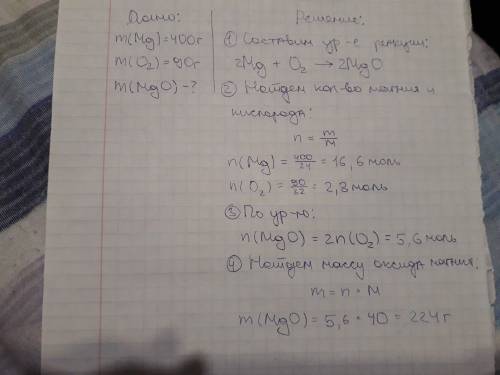 Дано:
m(Mg)=400г
m(O₂)=90г
m(MgO)-?
Решение:
① Составим ур-е реакции:
2Mg + O₂ → 2MgO
② Найдем кол-во магния и
кислорода:
n = m/M
n(Mg) = 400/24 = 16,6 моль
n(O₂) = 90/32 = 2,8 моль
③ По ур-ю:
n(MgO) = 2n(O₂) = 5,6 моль
④ Найдем массу оксида магния:
m = n • M
m(MgO) = 5,6 • 40 = 224 г